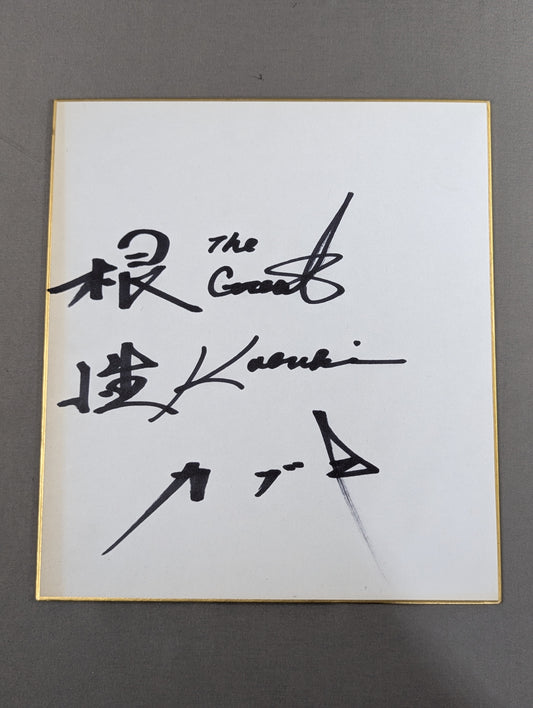 根性
The
Great
Kabuki
カブキ